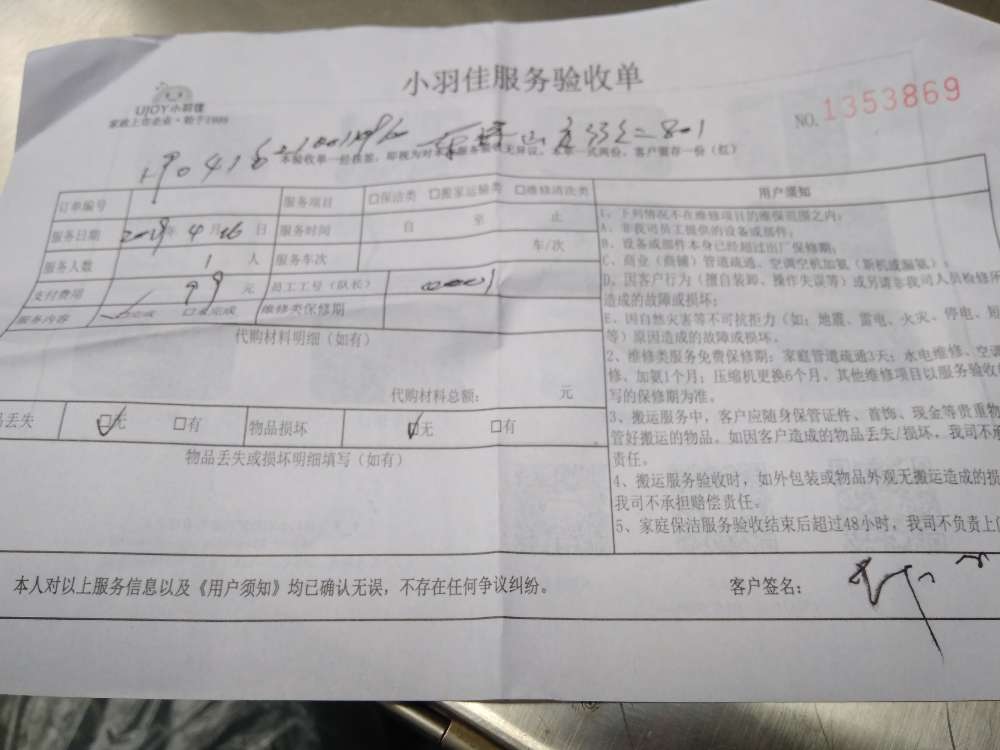 小羽佳服务验收单
UJOY小羽佳
家政上市企业·始于1999
NO.1353869
本验收单一经核签,即视为对本次服务验收无异议,本单一式两份,客户留存一份(红)
订单编号 服务项目 □保洁类 □搬家运输类 □维修清洗类
服务日期 2019年4月16日 服务时间 自 至 止
服务人数 1人 服务车次 车/次
支付费用 99元 员工工号(队长) 00001
服务内容 □完成 □未完成 维修类保修期
代购材料明细(如有)
代购材料总额: 元
品丢失 □无 □有 物品损坏 □无 □有
物品丢失或损坏明细填写(如有)
用户须知
1、下列情况不在维修项目的维保范围之内:
A、非我司员工提供的设备或部件;
B、设备或部件本身已经超过出厂保修期;
C、商业(商铺)管道疏通、空调空机加氨(新机或漏氨);
D、因客户行为(擅自装卸、操作失误等)或另请非我司人员检修所
造成的故障或损坏;
E、因自然灾害等不可抗拒力(如:地震、雷电、火灾、停电、短
等)原因造成的故障或损坏。
2、维修类服务免费保修期:家庭管道疏通3天;水电维修、空调
修、加氨1个月;压缩机更换6个月,其他维修项目以服务验收
写的保修期为准。
3、搬运服务中,客户应随身保管证件、首饰、现金等贵重物
管好搬运的物品。如因客户造成的物品丢失/损坏,我司不承
责任。
4、搬运服务验收时,如外包装或物品外观无搬运造成的损
我司不承担赔偿责任。
5、家庭保洁服务验收结束后超过48小时,我司不负责上
本人对以上服务信息以及《用户须知》均已确认无误,不存在任何争议纠纷。 客户签名: